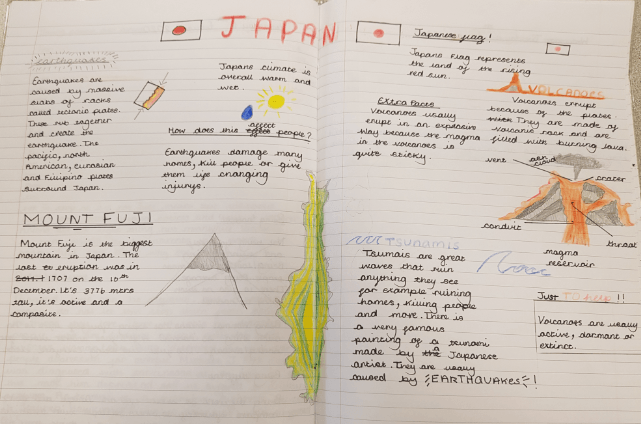 JAPAN
earthquakes
Earthquakes are
caused by massive
slabs of rocks
called tectonic plates.
These rub together
and create the
earthquake. The
pacific, north
American, eurasian
and Filipino plates
surround Japan.
Japans climate is
overall warm and
wet.
How does this affect people?
Earthquakes damage many
homes, kill people or give
them life changing
injurys.
MOUNT FUJI
Mount Fuji is the biggest
mountain in Japan. The
last eruption was in
1707 on the 16th
December. It's 3776 meters
tall, it's active and a
composite.
Japanese flag!
Japans flag represents
the land of the rising
red sun.
VOLCANOES
Volcanoes errupt
because of the plates
They are made of
volcanic rock and are
filled with burning lava.
Extra Facts
Volcanoes usually
erupt in an explosive
way because the magma
in the volcanoes is
quite sticky.
vent
ash
cloud
crater
conduit
throat
magma
reservoir
Tsunamis
Tsumais are great
waves that ruin
anything they see
for example ruining
homes, killing people
and more. There is
a very famous
painting of a tsunami
made by a Japanese
artist. They are usually
caused by EARTHQUAKES!
Just
!!
Volcanoes are usually
active, dormant or
extinct.